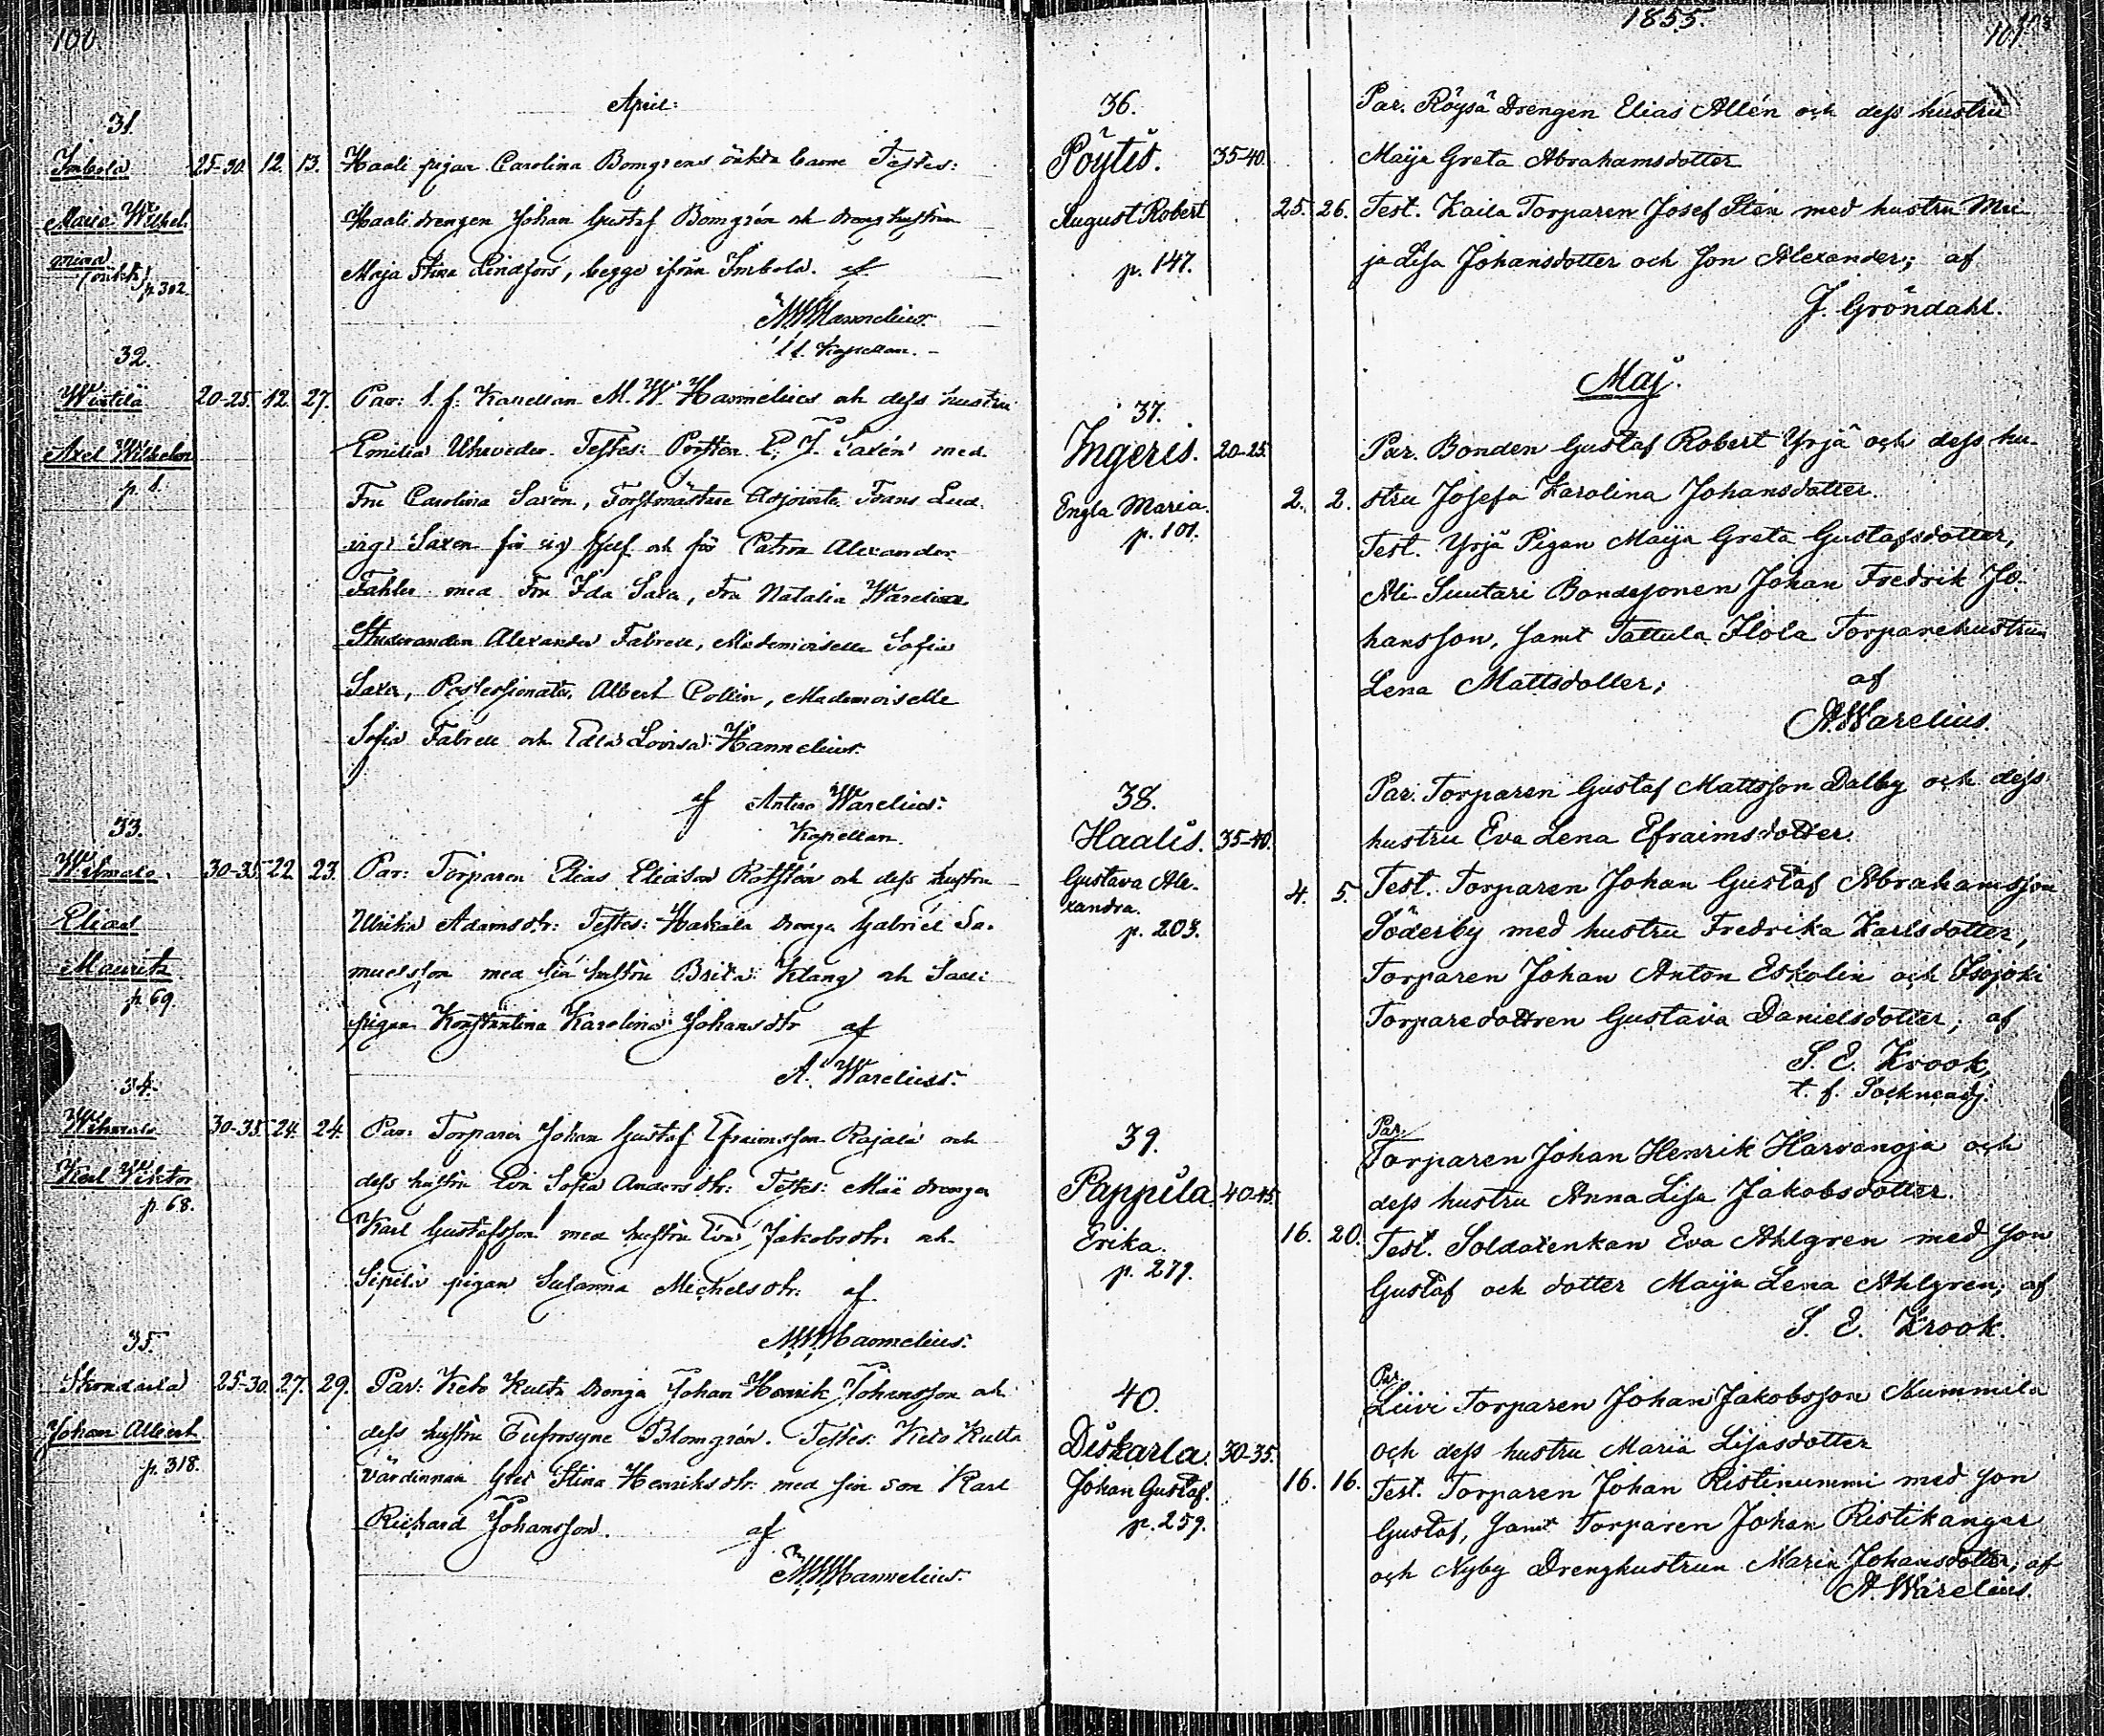 100.
April:
31.
Imbola 25-30. 12. 13. Haali pigan Carolina Bomgrens oäkta barn Testes:
Maria Wilhel- Haali drengen Johan Gustaf Bomgrén och dreng hustrun
mina Maja Stina Lindfors, begge ifrån Imbola. af
(oäkta) p. 302.
MWHannelius.
t. f. Kapellan.
32.
20-25. 12. 27. Par: t. f. Kapellan M. W. Hannelius och dess hustru
Axel Wilhelm Emilia Testes: Saxén med
p. 1. Fru Carolina Saxén, Forstmästare Adjointe Frans Lud-
vig Saxen för sig sjelf och för Patron Alexander
med Fru Ida Fru Natalia Warelius
Studeranden Alexander Mademoiselle Sofia
Albert Mademoiselle
Sofia och Edla Lovisa Hannelius.
af Antero Warelius:
Kapellan.
33.
30-35. 22. 23. Par: Torparen Elias Eliasson och dess hustru
Elias Ulrika Adamsdtr: Testes: Hakala drengen Gabriel Sa-
Mauritz muelsson med sin hustru Brita Klang och
p. 69. pigan Konstantina Karolina Johansdtr af
A. Warelius.
34.
30-35. 24. 24. Par: Torparen Johan Gustaf Efraimsson Rajala och
Karl Viktor dess hustru Eva Sofia Andersdtr: Testes: drengen
p. 68. Karl Gustafsson med hustru Eva Jakobsdtr: och
Sipilä pigan Susanna Michelsdtr: af
MWHannelius.
35.
25-30. 27. 29. Par: Keto Kulta drengen Johan Henrik Johansson och
Johan Albert dess hustru Eufrosyne Blomgrén. Testes: Keto Kulta
p. 318. värdinnan Stina Henriksdtr: med sin son Karl
Richard Johansson. af
MWHannelius.
1855.
101.
36. Par. Röysä Drengen Elias Allén och dess hustru
Pöytis. 35-40. Maija Greta Abrahamsdotter
August Robert 25. 26. Test. Kaila Torparen Josef Stén med hustru Mai-
p. 147. ja Lisa Johansdotter och son Alexander; af
J. Gröndahl.
Maj.
37.
Ingeris. 20-25. Par. Bonden Gustaf Robert Yrjä och dess hu-
Engla Maria. 2. 2. stru Josefa Karolina Johansdotter.
p. 101. Test. Yrjä Pigan Maija Greta Gustafsdotter,
Ali-Suutari Bondesonen Johan Fredrik Jo-
hansson, samt Tattula Ilola Torparehustrun
Lena Mattsdotter; af
A. Warelius.
38. Par. Torparen Gustaf Mattsson Dalby och dess
Haalis. 35-40. hustru Eva Lena Efraimsdotter.
Gustava Ale- 4. 5. Test. Torparen Johan Gustaf Abrahamsson
xandra. Söderby med hustru Fredrika Karlsdotter,
p. 203. Torparen Johan Anton Eskolin och Isojoki
Torparedottren Gustava Danielsdotter; af
S. E. Krook,
t. f. Sockneadj.
Par.
39. Torparen Johan Henrik Harvanoja och
Pappila. 40-45. dess hustru Anna Lisa Jakobsdotter.
Erika. 16. 20. Test. Soldatenkan Eva Ahlgren med son
p. 279. Gustaf och dotter Maija Lena Ahlgren; af
S. E. Krook.
Par.
40. Liivi Torparen Johan Jakobsson Nummila
Diskarla. 30-35. och dess hustru Maria Lisasdotter
Johan Gustaf. 16. 16. Test. Torparen Johan Ristinummi med son
p. 259. Gustaf, samt Torparen Johan Ristikangar
och Nyby Drenghustrun Maria Johansdotter; af
A. Warelius.